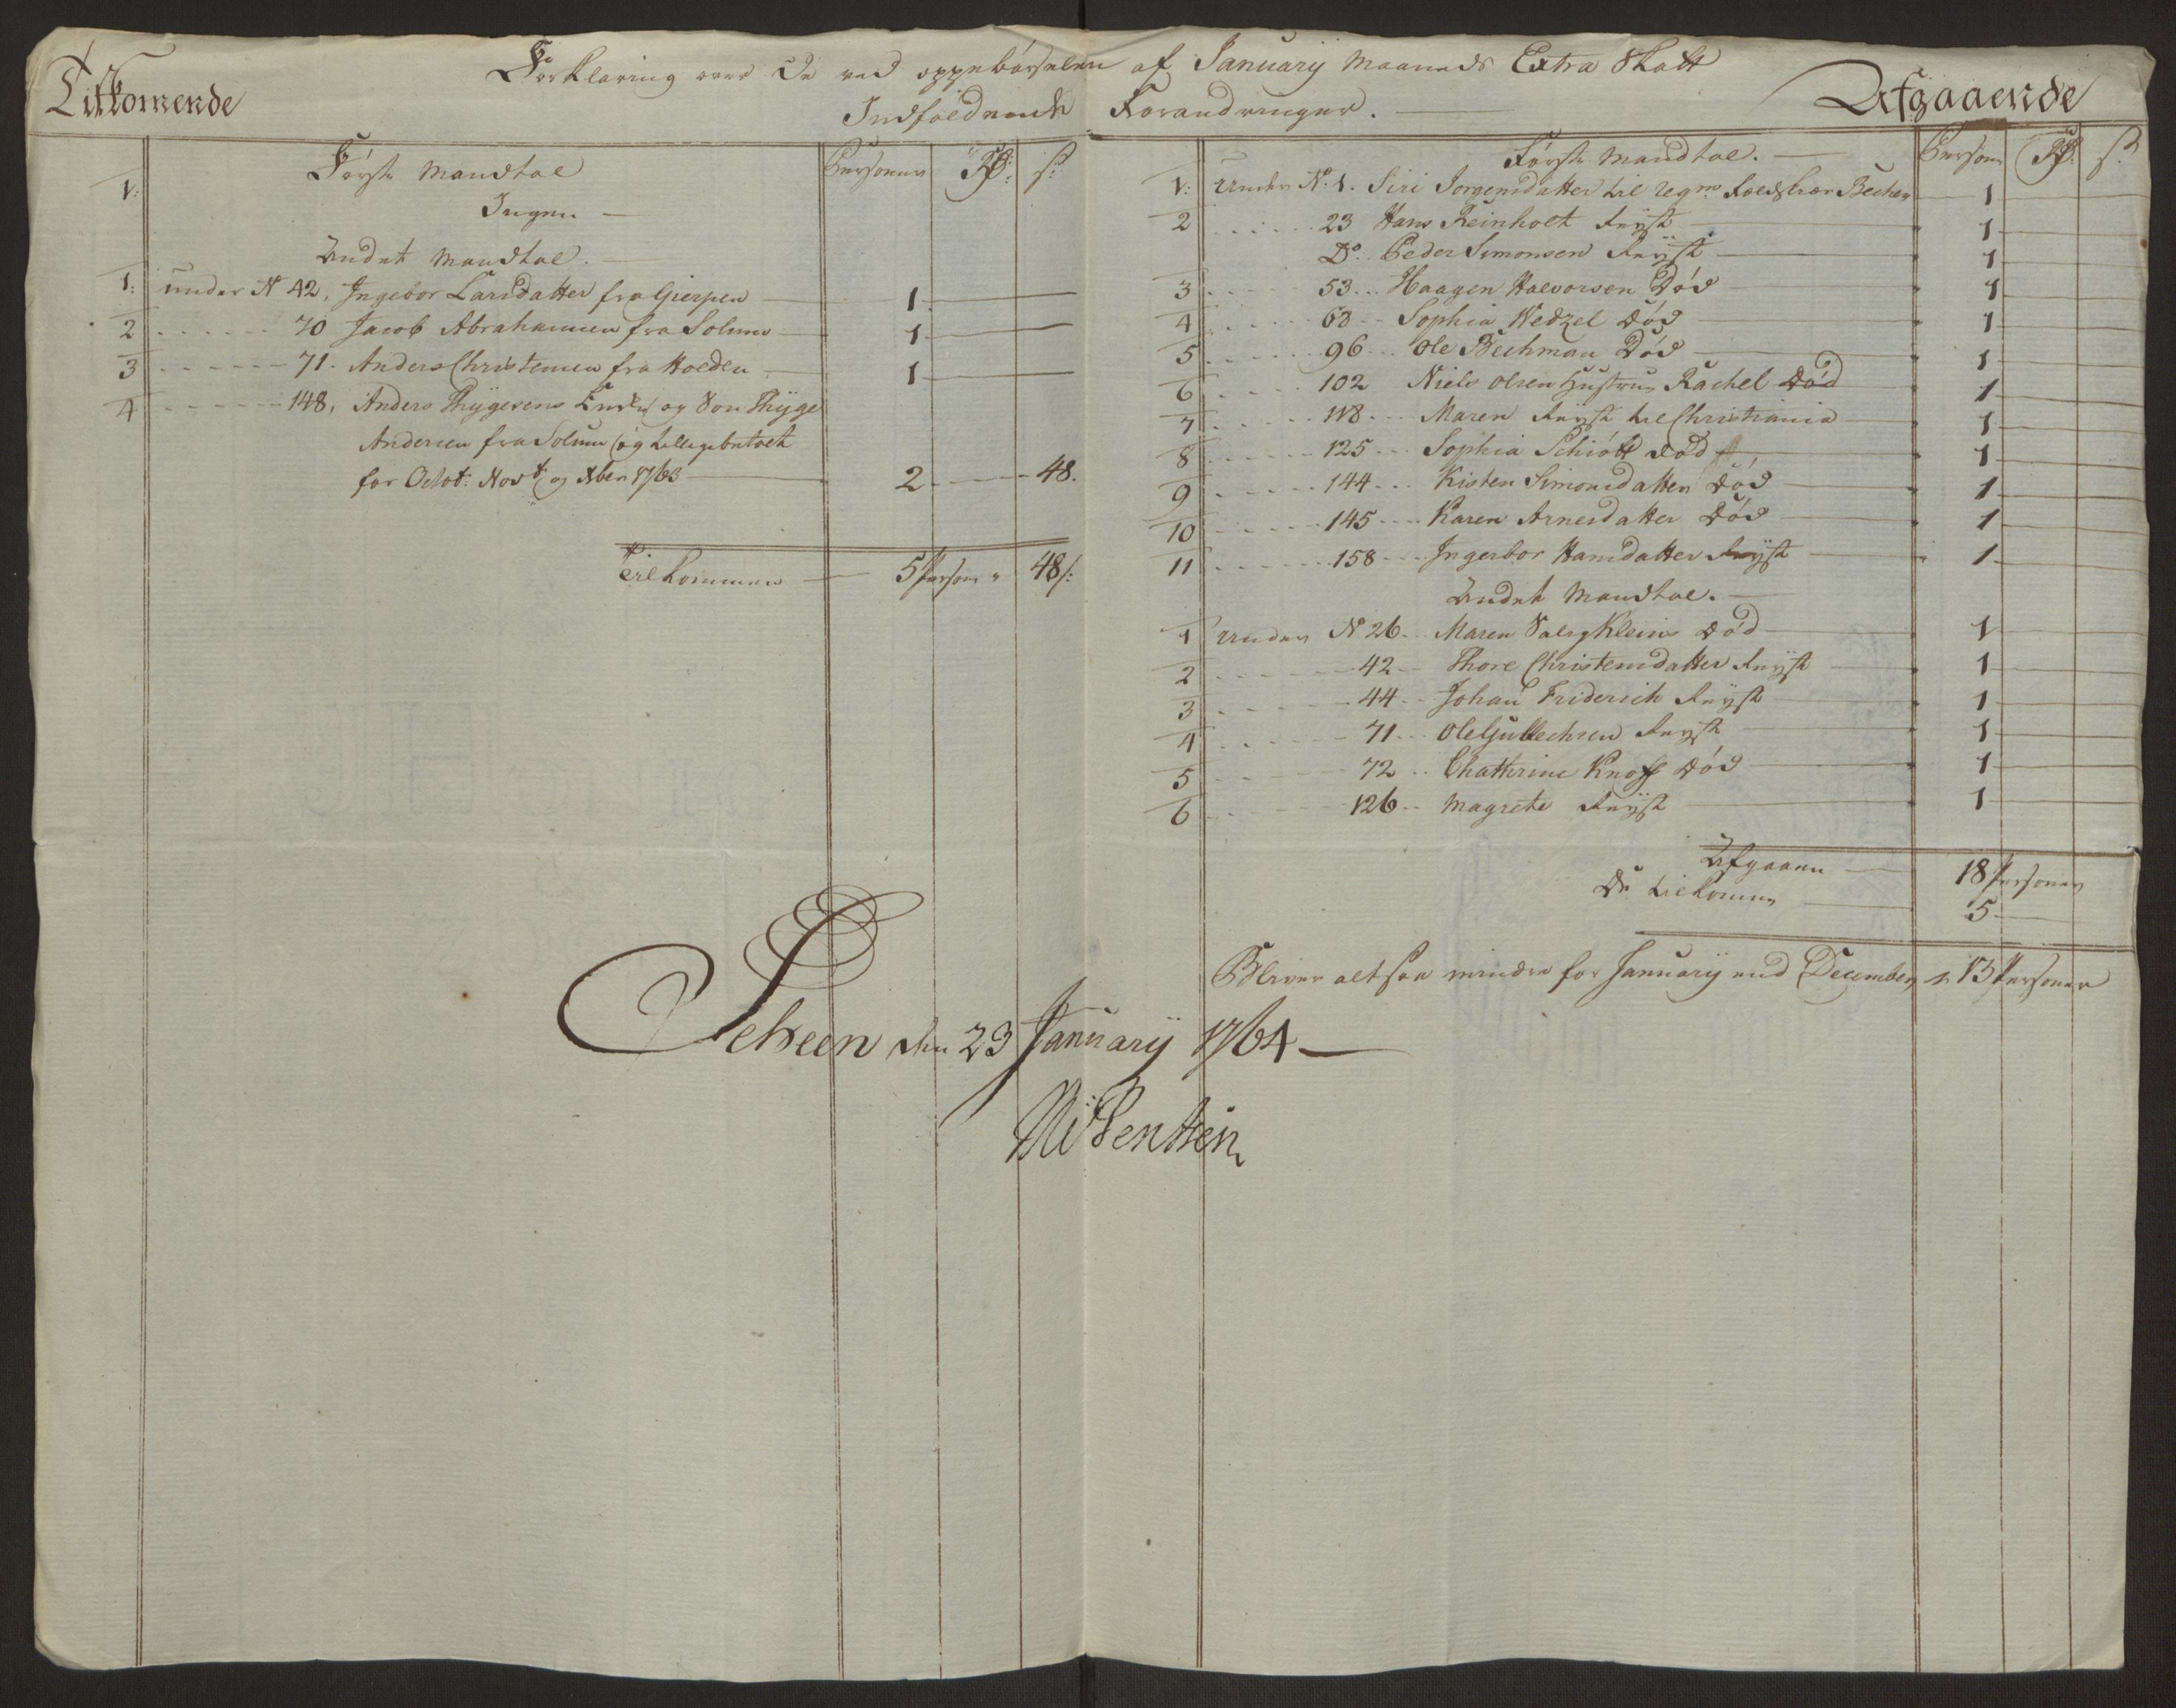 Forklaring over de ved oppebørselen af Januarij Maaneds Extra Skatt
Tilkomende
Indfaldende Forandringer.
Afgaaende
Første Mandtal
Personer Rdr: s:
1:
Ingen
Andet Mandtal.
1: under N 42, Ingebor Larsdatter fra Gierpen 1
2 70 Jacob Abrahamsen fra Solum 1
3 71. Anders Christensen fra Holden 1
4 148, Anders Thygesens Enke og Søn Thyge
Andersen fra Solum og tillige betalt
for Octob: Novb og Xber 1763 2 48.
Tilkommen 5 Person 48 s:
Første Mandtal.
Person Rdr: s:
1: Under No: 1. Siri Jorgensdatter til Becher 1
2 23 Hans Reinholt Reyst 1
Do. Peder Simonsen Reyst 1
3 53 Haagen Halvorsen Død 1
4 63 Sophia Wedzel død 1
5 96 Ole Bechman Død 1
6 102 Niels Olsen Hustrue Rachel død 1
7 118 Maren Reyst til Christiania 1
8 125 Sophia Schiøtt død 1
9 144 Kisten Simonsdatter død 1
10 145 Karen Arnesdatter død 1
11 158 Ingerbor Hansdatter Reyst 1
Andet Mandtal.
1 Under N 26 Maren Salig Kleins død 1
2 42 Thore Christensdatter Reyst 1
3 44 Johan Friderich Reyst 1
4 71 Ole Gulbechsen Reyst 1
5 72 Chathrine Knoff død 1
6 126 Magrete Reyst 1
Afgaaen 18 Personer
De tilkomne 5
Bliver altsaa mindre for Januarij end December 13 Personer
Scheen den 23 Januarij 1764